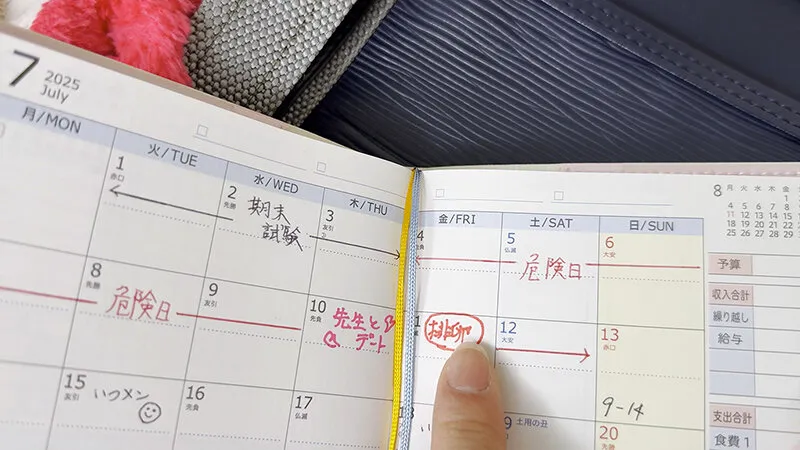 7 2025
July
月/MON
火/TUE
水/WED
木/THU
1
赤口
2
先勝
期末
試験
3
友引
8
先勝
危険日
9
友引
10
先負
先生と
デート
15
友引
いつメン
16
先負
17
仏滅
金/FRI
土/SAT
日/SUN
4
5
仏滅
危険日
6
大安
排卵
12
大安
13
赤口
9-14
土用の丑
20
先負
8 月 火 水 木 金
1
4 5 6 7 8
11 12 13 14 15
18 19 20 21 22
25 26 27 28 29
予算
収入合計
繰り越し
給与
支出合計
食費 1